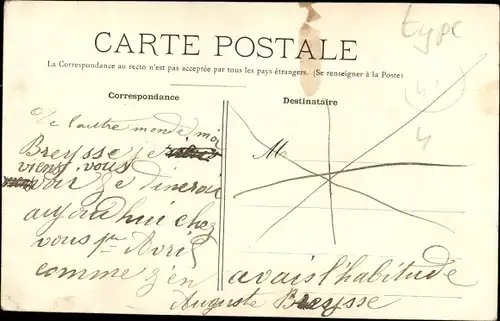 CARTE POSTALE
La Correspondance au recto n'est pas acceptée par tous les pays étrangers. (Se renseigner à la Poste)
type
4
Correspondance
Destinataire
De l'autre monde moi
Breysse je
viens vous
voir Je dinerai
aujourd'hui chez
vous Avril
comme j'en avais l'habitude
Auguste Breysse
M